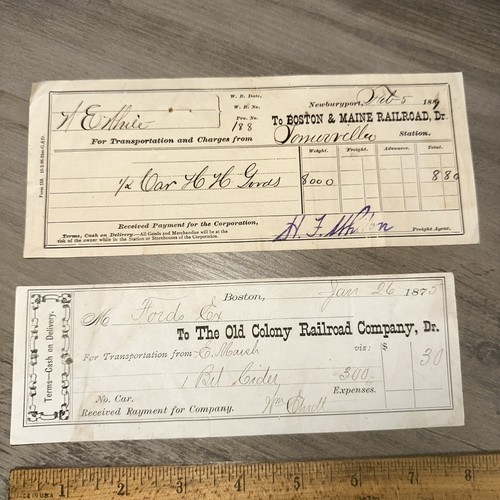 W. B. Date,
W. B. No.
Newburyport, Feb 5 189
Pro. No. 188
To BOSTON & MAINE RAILROAD, Dr.
For Transportation and Charges from Somerville Station.
Weight. Freight. Advance. Total.
1/2 Car H H Goods 8000 880
Received Payment for the Corporation,
Terms, Cash on Delivery.—All Goods and Merchandise will be at the
risk of the owner while in the Station or Storehouses of the Corporation.
H. F. Freight Agent.
Boston, Jan 26 1875
M Fords Ex
To The Old Colony Railroad Company, Dr.
Terms—Cash on Delivery.
For Transportation from E. Marsh viz: $
1 Bbl Cider 300 30
Expenses.
No. Car.
Received Payment for Company. Wm
1 2 3 4 5 6 7 8